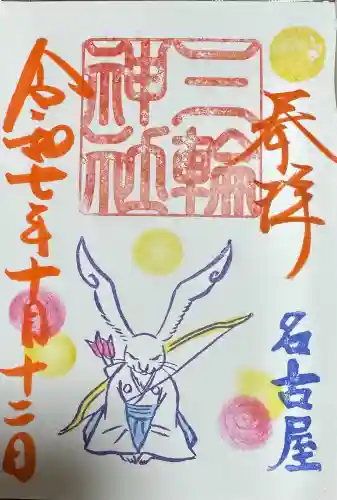 奉拝
三輪
神社
名古屋
令和七年十月十二日